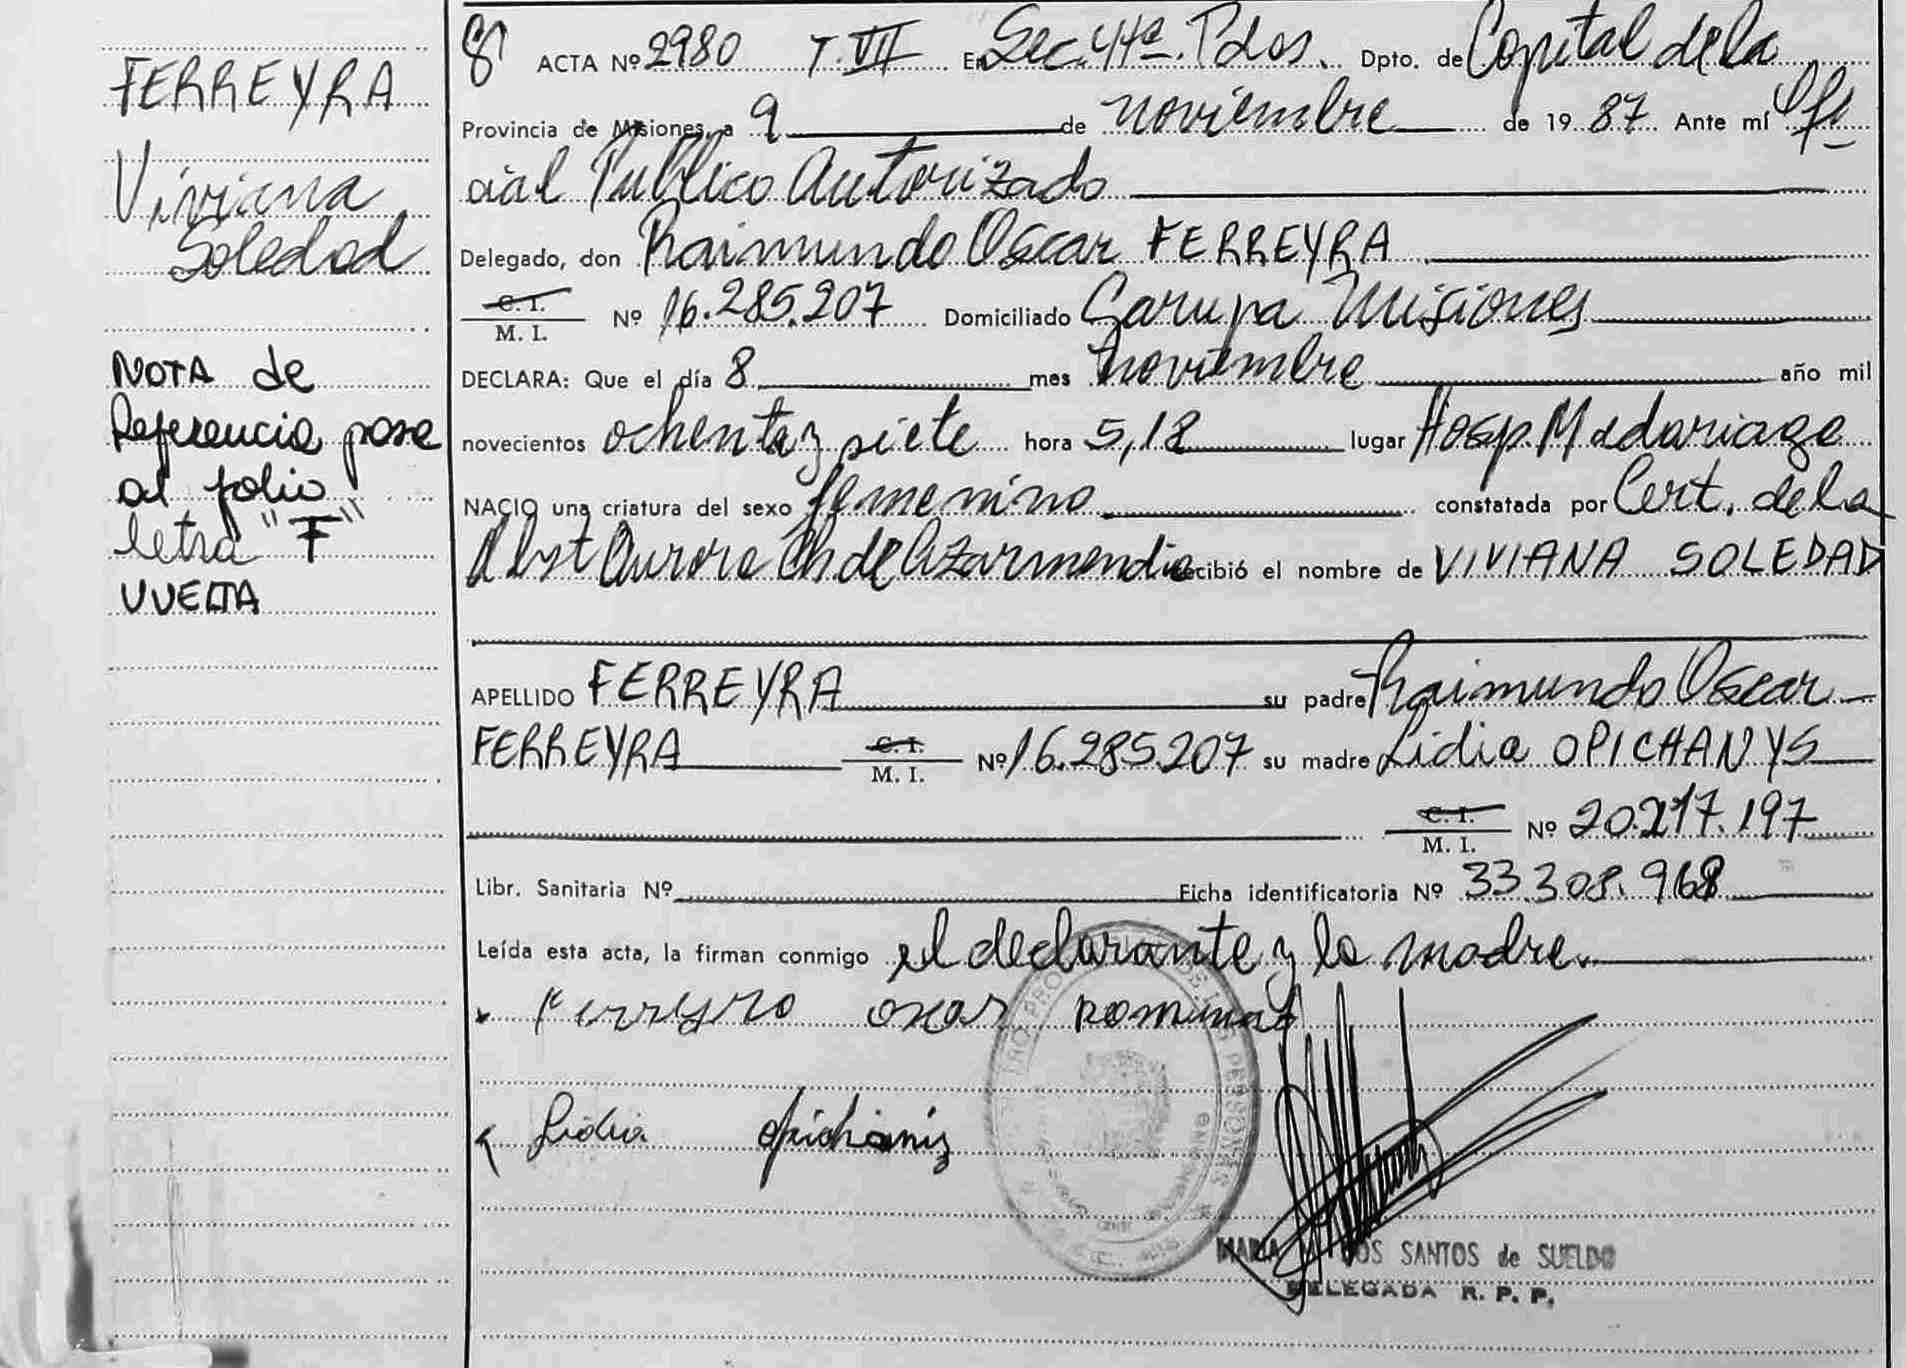 FERREYRA
Viviana
Soledad
NOTA de
Referencia pase
al folio
letra "F"
VUELTA
8 ACTA Nº 2980 T. VII En Sec. 44ª. Pdos. Dpto. de Capital de la
Provincia de Misiones, a 9 de noviembre de 1987 Ante mí Ofi
cial Publico Autorizado
Delegado, don Raimundo Oscar FERREYRA
C. I.
M. I. Nº 16.285.207 Domiciliado Garupa Misiones
DECLARA: Que el día 8 mes noviembre año mil
novecientos ochenta y siete hora 5,18 lugar Hosp. Madariaga
NACIO una criatura del sexo femenino constatada por Cert. de la
Obst Aurora Ch de Azarmendia recibió el nombre de VIVIANA SOLEDAD
APELLIDO FERREYRA su padre Raimundo Oscar
FERREYRA C. I. M. I. Nº 16.285.207 su madre Lidia OPICHANYS
C. I.
M. I. Nº 20.217.197
Libr. Sanitaria Nº Ficha identificatoria Nº 33.308.968
Leída esta acta, la firman conmigo el declarante y la madre.
Ferreyro oscar
Lidia opichaniz
MARIA DOS SANTOS de SUELDO
DELEGADA R. P. P.